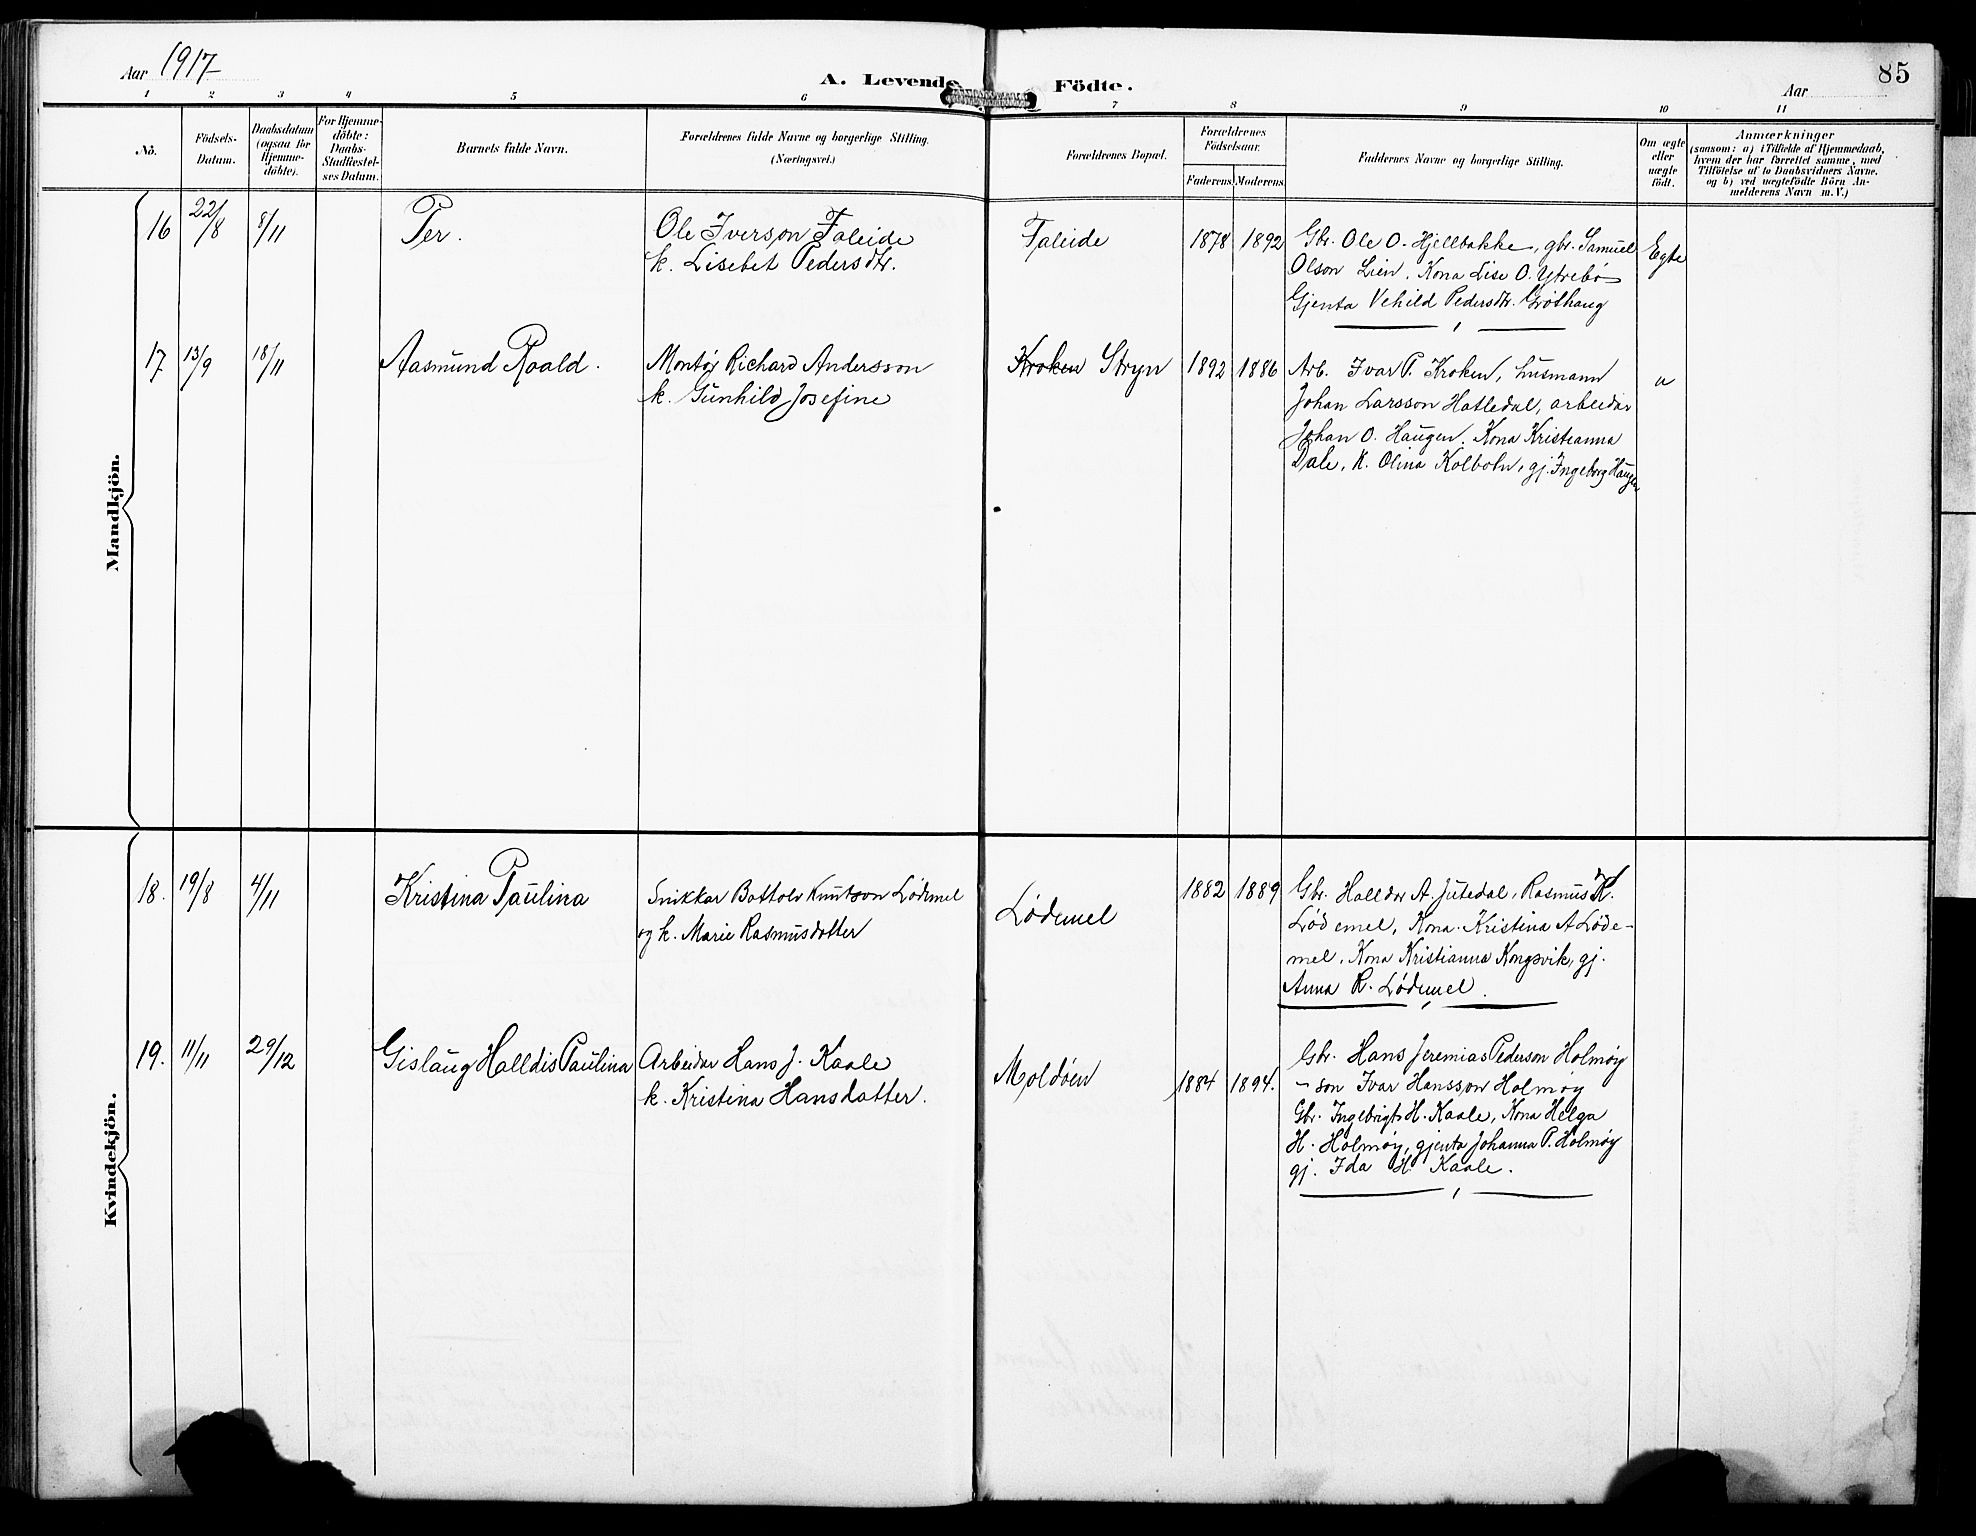 Aar 1917
A. Levende Födte.
Aar
85
1 2 3 4 5 6 7 8 9 10 11
No.
Födsels-
Datum.
Daabsdatum
(ogsaa for
Hjemme-
döbte).
For Hjemme-
döbte:
Daabs-
Stadfæstel-
ses Datum.
Barnets fulde Navn.
Forældrenes fulde Navne og borgerlige Stilling.
(Næringsvei.)
Forældrenes Bopæl.
Forældrenes
Födselsaar.
Faderens Moderens
Faddernes Navne og borgerlige Stilling.
Om ægte
eller
uægte
födt.
Anmærkninger
(saasom: a) i Tilfælde af Hjemmedaab,
hvem der har forrettet samme, med
Tilföielse af to Daabsvidners Navne.
og b) ved uægtefödte Börn An-
melderens Navn m. V.)
Mandkjön.
16 22/8 8/11 Per.
Ole Iverson Faleide
k. Lisebet Pedersdtr.
Faleide 1878 1892
Gbr. Ole O. Hjellbakke, gbr. Samuel
Olson Lien, Kona Lise O. Ytrebø
Gjenta Vehild Pedersdtr. Grøthaug
Egte
17 13/9 18/11 Aasmund Roald.
Montør Richard Andersson
k. Gunhild Josefine
Kroken Stryn 1892 1886
Arb. Ivar P. Kroken, husmann
Johan Larsson Hatledal, arbeidar
Johan O. Haugen. Kona Kristianna
Dale, K. Olina Kolbotn, gj. Ingeborg Haugen
"
Kvindekjön.
18. 19/8 4/11 Kristina Paulina
Snikkar Bottolv Knutson Lødemel
og k. Marie Rasmusdotter
Lødemel 1882 1889
Gbr. Halldor A. Jutedal, Rasmus K.
Lødemel, Kona Kristina A Løde-
mel, Kona Kristianna Kongsvik, gj.
Anna R. Lødemel.
19. 11/11 29/12 Gislaug Halldis Paulina
Arbeidar Hans J. Kaale
k. Kristina Hansdatter.
Moldøen 1884 1894.
Gbr. Hans Jeremias Pederson Holmøy
- son Ivar Hansson Holmøy
Gbr. Ingebrigt H. Kaale, Kona Helga
H. Holmøy, gjenta Johanna P. Holmøy
gj. Ida H. Kaale.